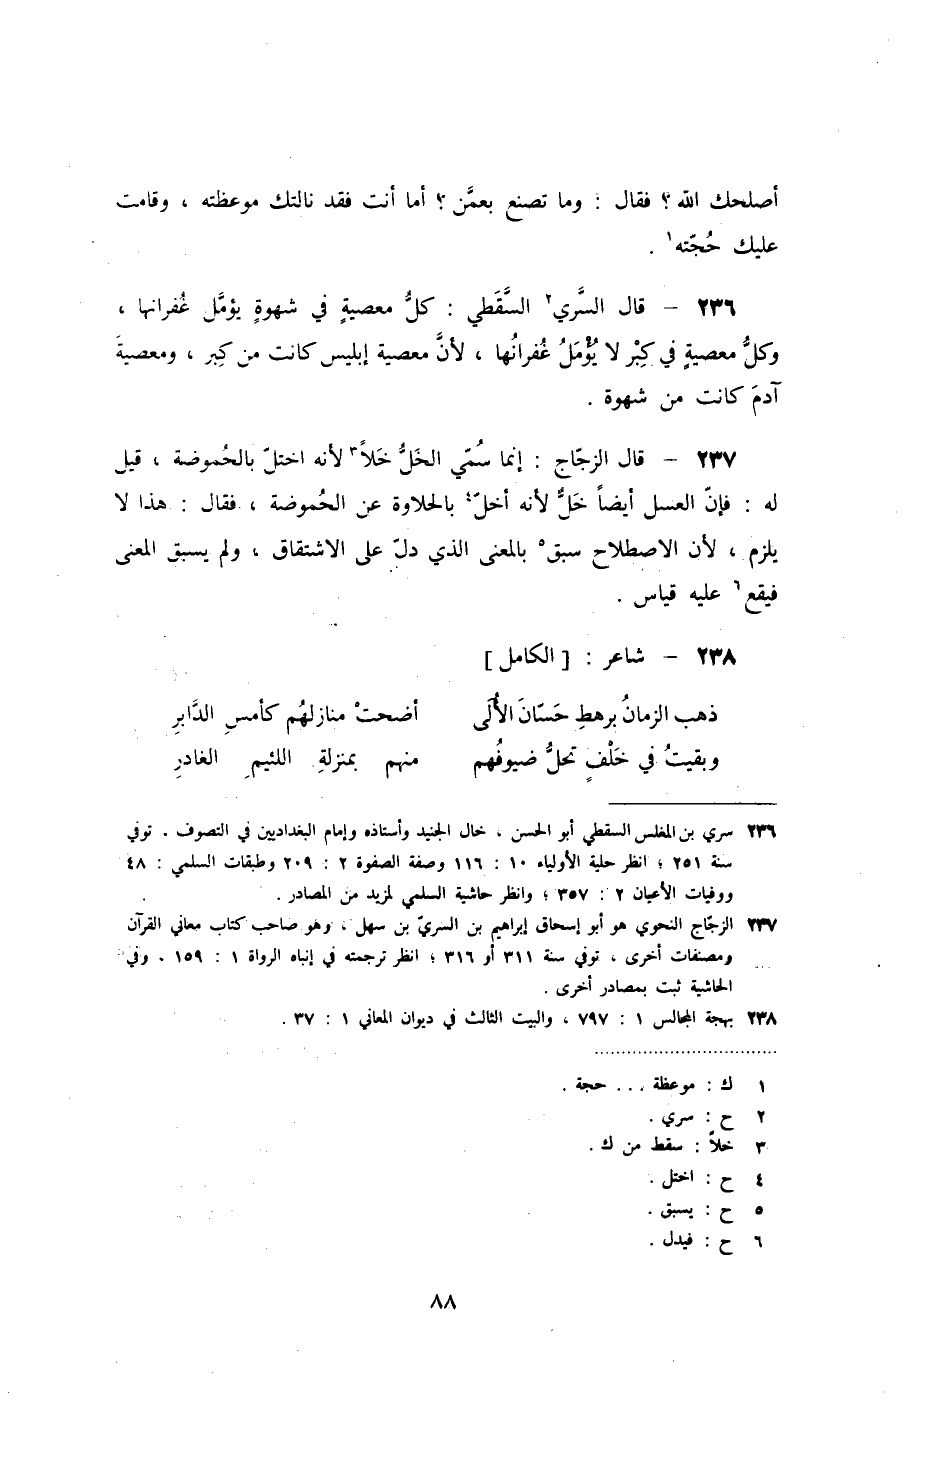 أصلحك الله ؟ فقال : وما تصنع بعمَّن ؟ أما أنت فقد نالتك موعظته ، وقامت
عليك حُجّته١ .
٢٣٦ – قال السَّري٢ السَّقَطي : كلُّ معصيةٍ في شهوةٍ يؤمَّل غُفرانها ،
وكلُّ معصيةٍ في كِبْر لا يُؤْمَلُ غُفرانُها ، لأنَّ معصية إبليس كانت من كِبر ، ومعصيةَ
آدمَ كانت من شهوة .
٢٣٧ – قال الزجّاج : إنما سُمّي الخَلُّ خَلاً٣ لأنه اختلّ بالحُموضة ، قيل
له : فإنّ العسل أيضاً خَلٌّ لأنه أخلّ٤ بالحلاوة عن الحُموضة ، فقال : هذا لا
يلزم ، لأن الاصطلاح سبق٥ بالمعنى الذي دلّ على الاشتقاق ، ولم يسبق المعنى
فيقع٦ عليه قياس .
٢٣٨ – شاعر : [ الكامل ]
ذهب الزمانُ برهطِ حَسّانَ الأُلَى أضحتْ منازلهُم كأمسِ الدَّابرِ
وبقيتُ في خَلْفٍ تحلُّ ضيوفُهم منهم بمنزلةِ اللئيمِ الغادرِ
٢٣٦ سري بن المغلس السقطي أبو الحسن ، خال الجنيد وأستاذه وإمام البغداديين في التصوف . توفي
سنة ٢٥١ ؛ انظر حلية الأولياء ١٠ : ١١٦ وصفة الصفوة ٢ : ٢٠٩ وطبقات السلمي : ٤٨
ووفيات الأعيان ٢ : ٣٥٧ ؛ وانظر حاشية السلمي لمزيد من المصادر .
٢٣٧ الزجّاج النحوي هو أبو إسحاق إبراهيم بن السريّ بن سهل ، وهو صاحب كتاب معاني القرآن
ومصنفات أخرى ، توفي سنة ٣١١ أو ٣١٦ ؛ انظر ترجمته في إنباه الرواة ١ : ١٥٩ . وفي
الحاشية ثبت بمصادر أخرى .
٢٣٨ بهجة المجالس ١ : ٧٩٧ ، والبيت الثالث في ديوان المعاني ١ : ٣٧ .
١ ك : موعظة ... حجة .
٢ ح : سري .
٣ خلاً : سقط من ك .
٤ ح : اختل .
٥ ح : يسبق .
٦ ح : فيدل .
٨٨